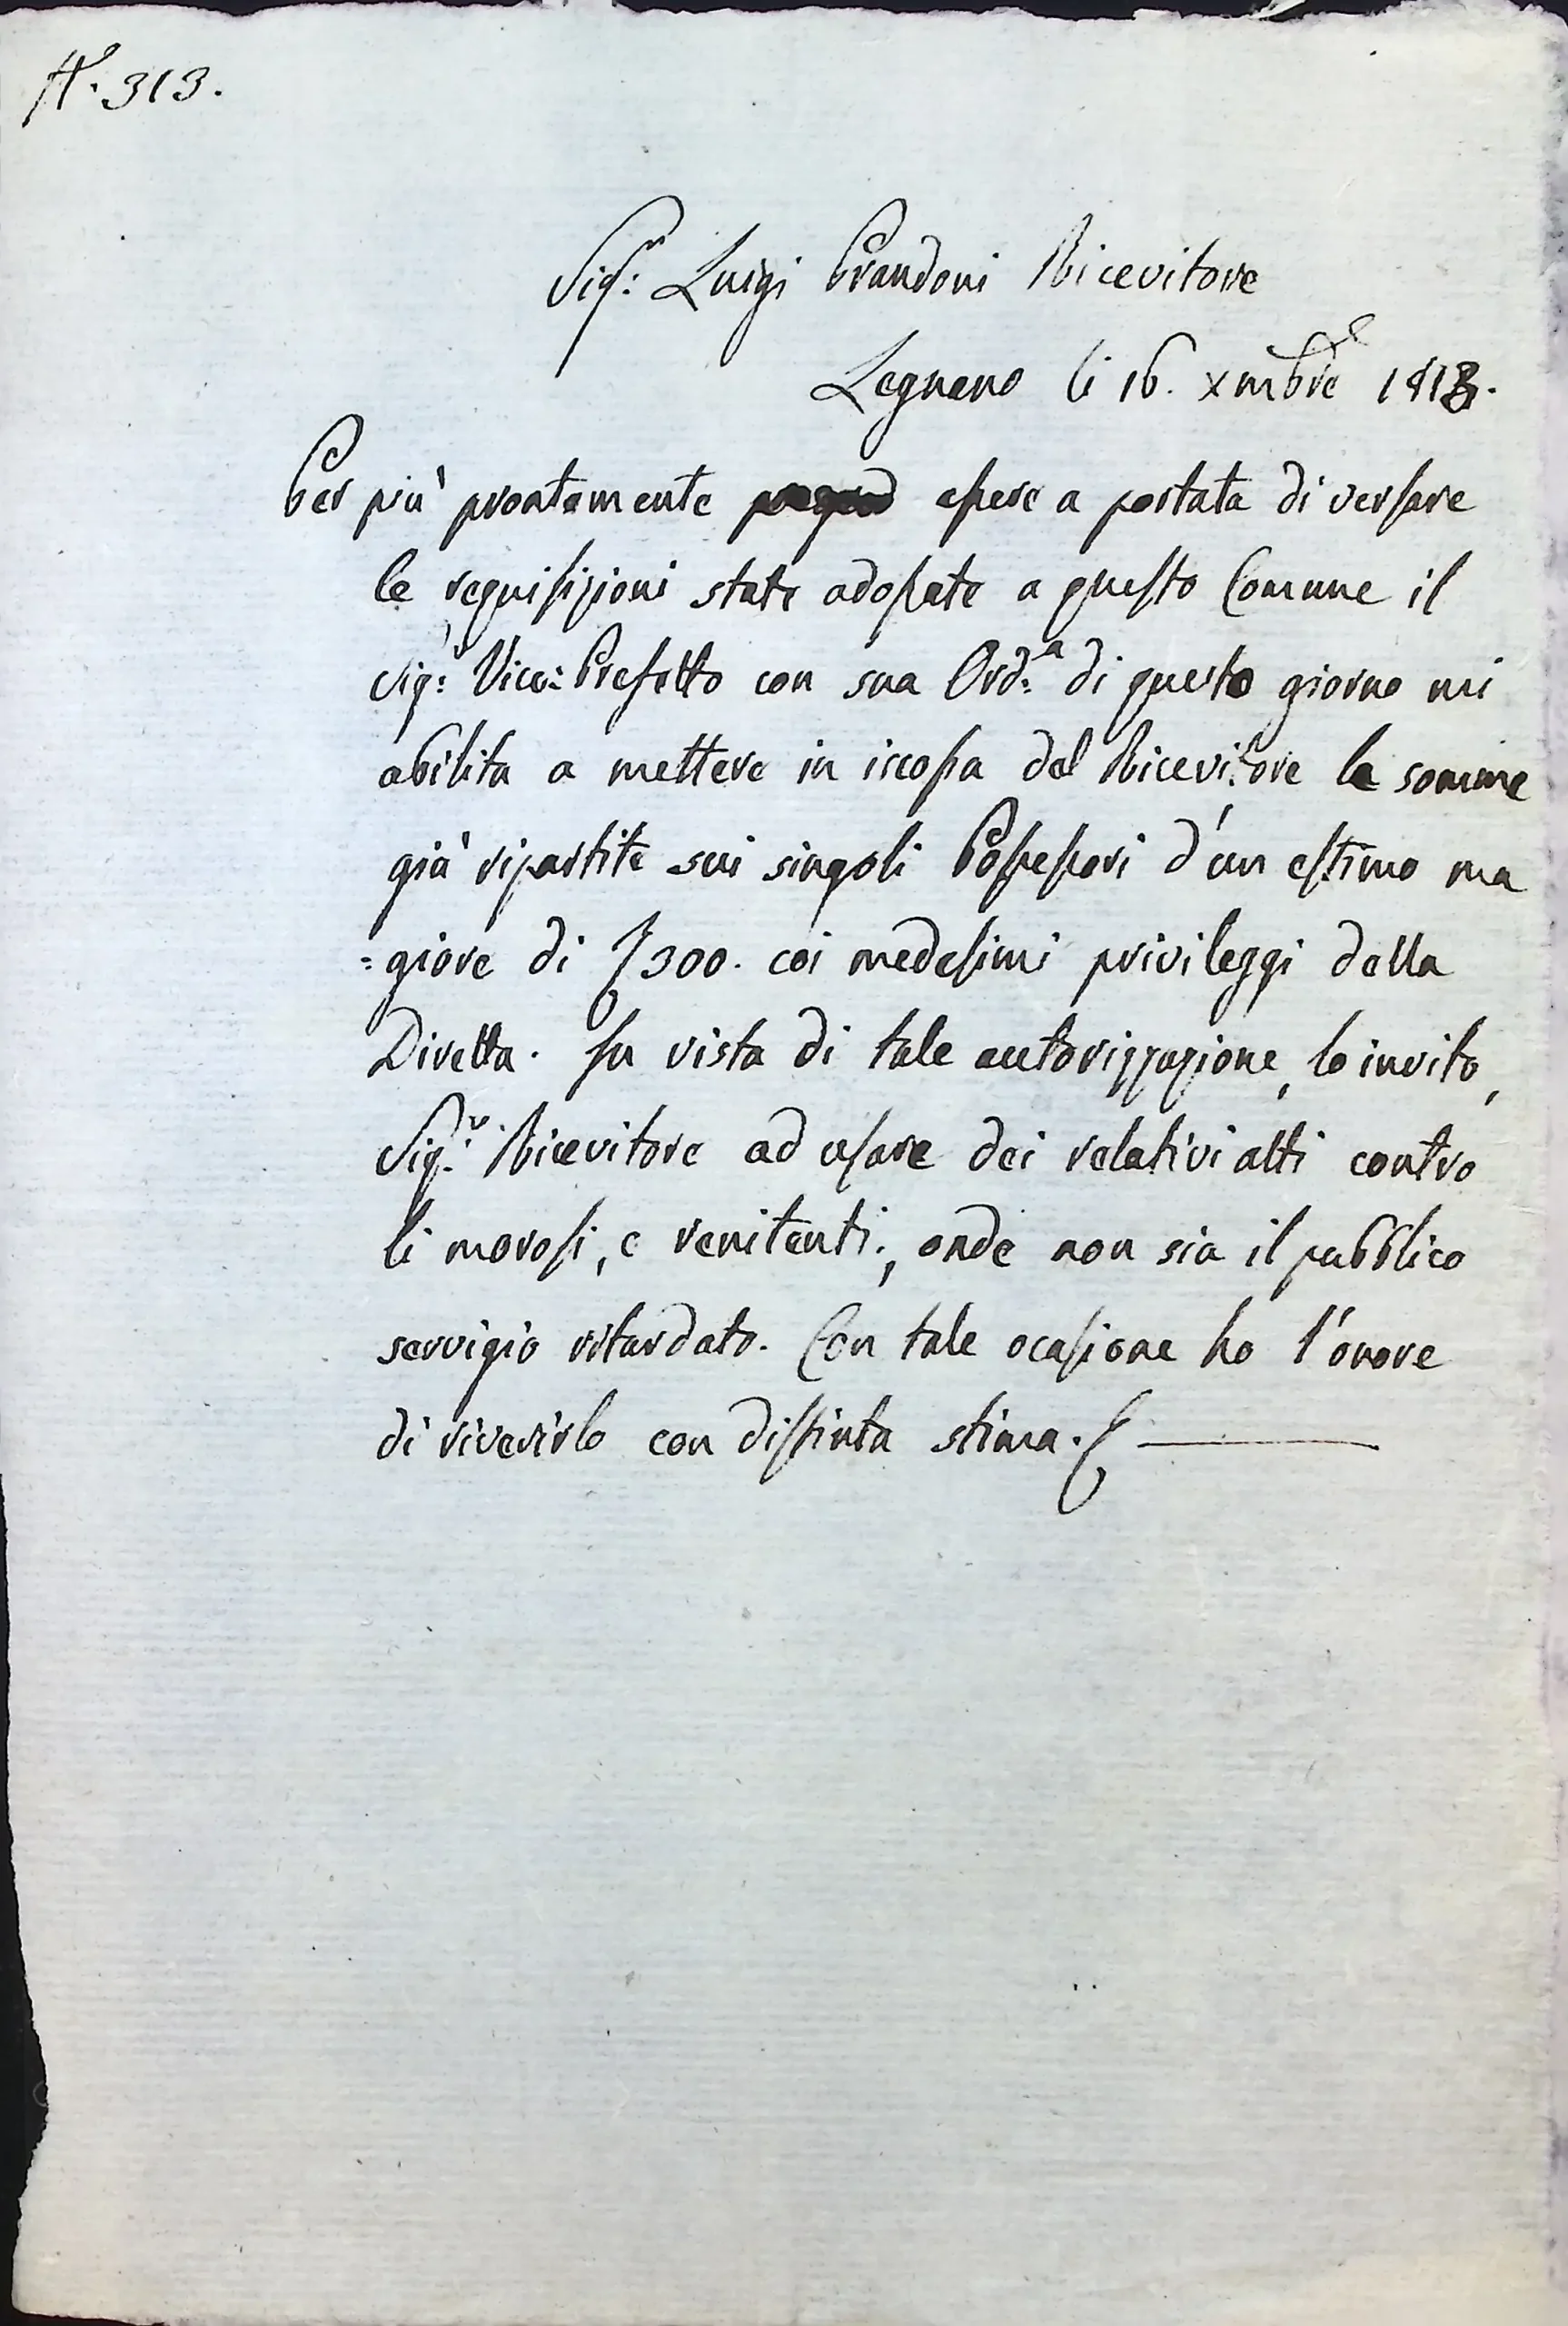 N.° 313.
Sig.r Luigi Prandoni Ricevitore
Legnano li 16. Xmbre 1813.
Per più prontamente essere a portata di versare
le requisizioni state adossate a questo Comune il
Sig.r Vice-Prefetto con sua Ord.a di questo giorno mi
abilita a mettere in iscossa del Ricevitore le somme
già ripartite sui singoli Possessori d'un estimo ma
=giore di 300. coi medesimi privileggi della
Diretta. Su vista di tale autorizzazione, lo invito,
Sig.r Ricevitore ad usare dei relativi atti contro
li morosi, e renitenti, onde non sia il pubblico
servigio ritardato. Con tale ocasione ho l'onore
di riverirlo con distinta stima.